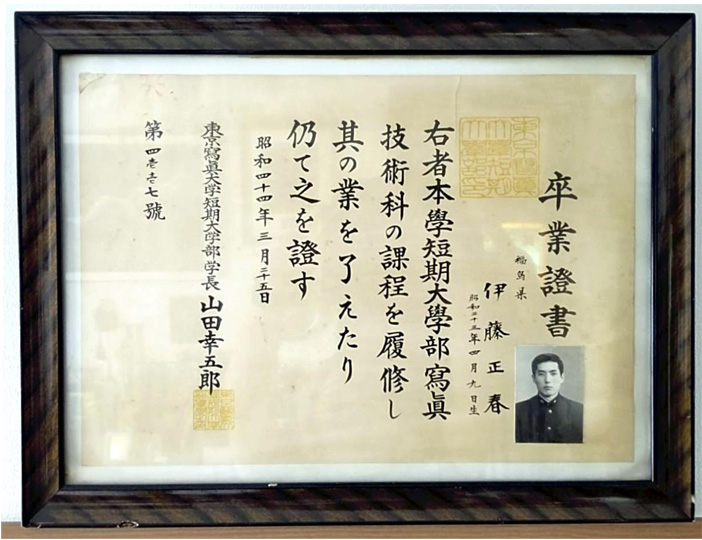 卒業證書
福島県
伊藤正春
昭和二十五年四月九日生
右者本學短期大學部寫眞
技術科の課程を履修し
其の業を了えたり
仍て之を證す
昭和四十四年三月二十五日
東京寫眞大学短期大学部学長 山田幸五郎
第四壱七號